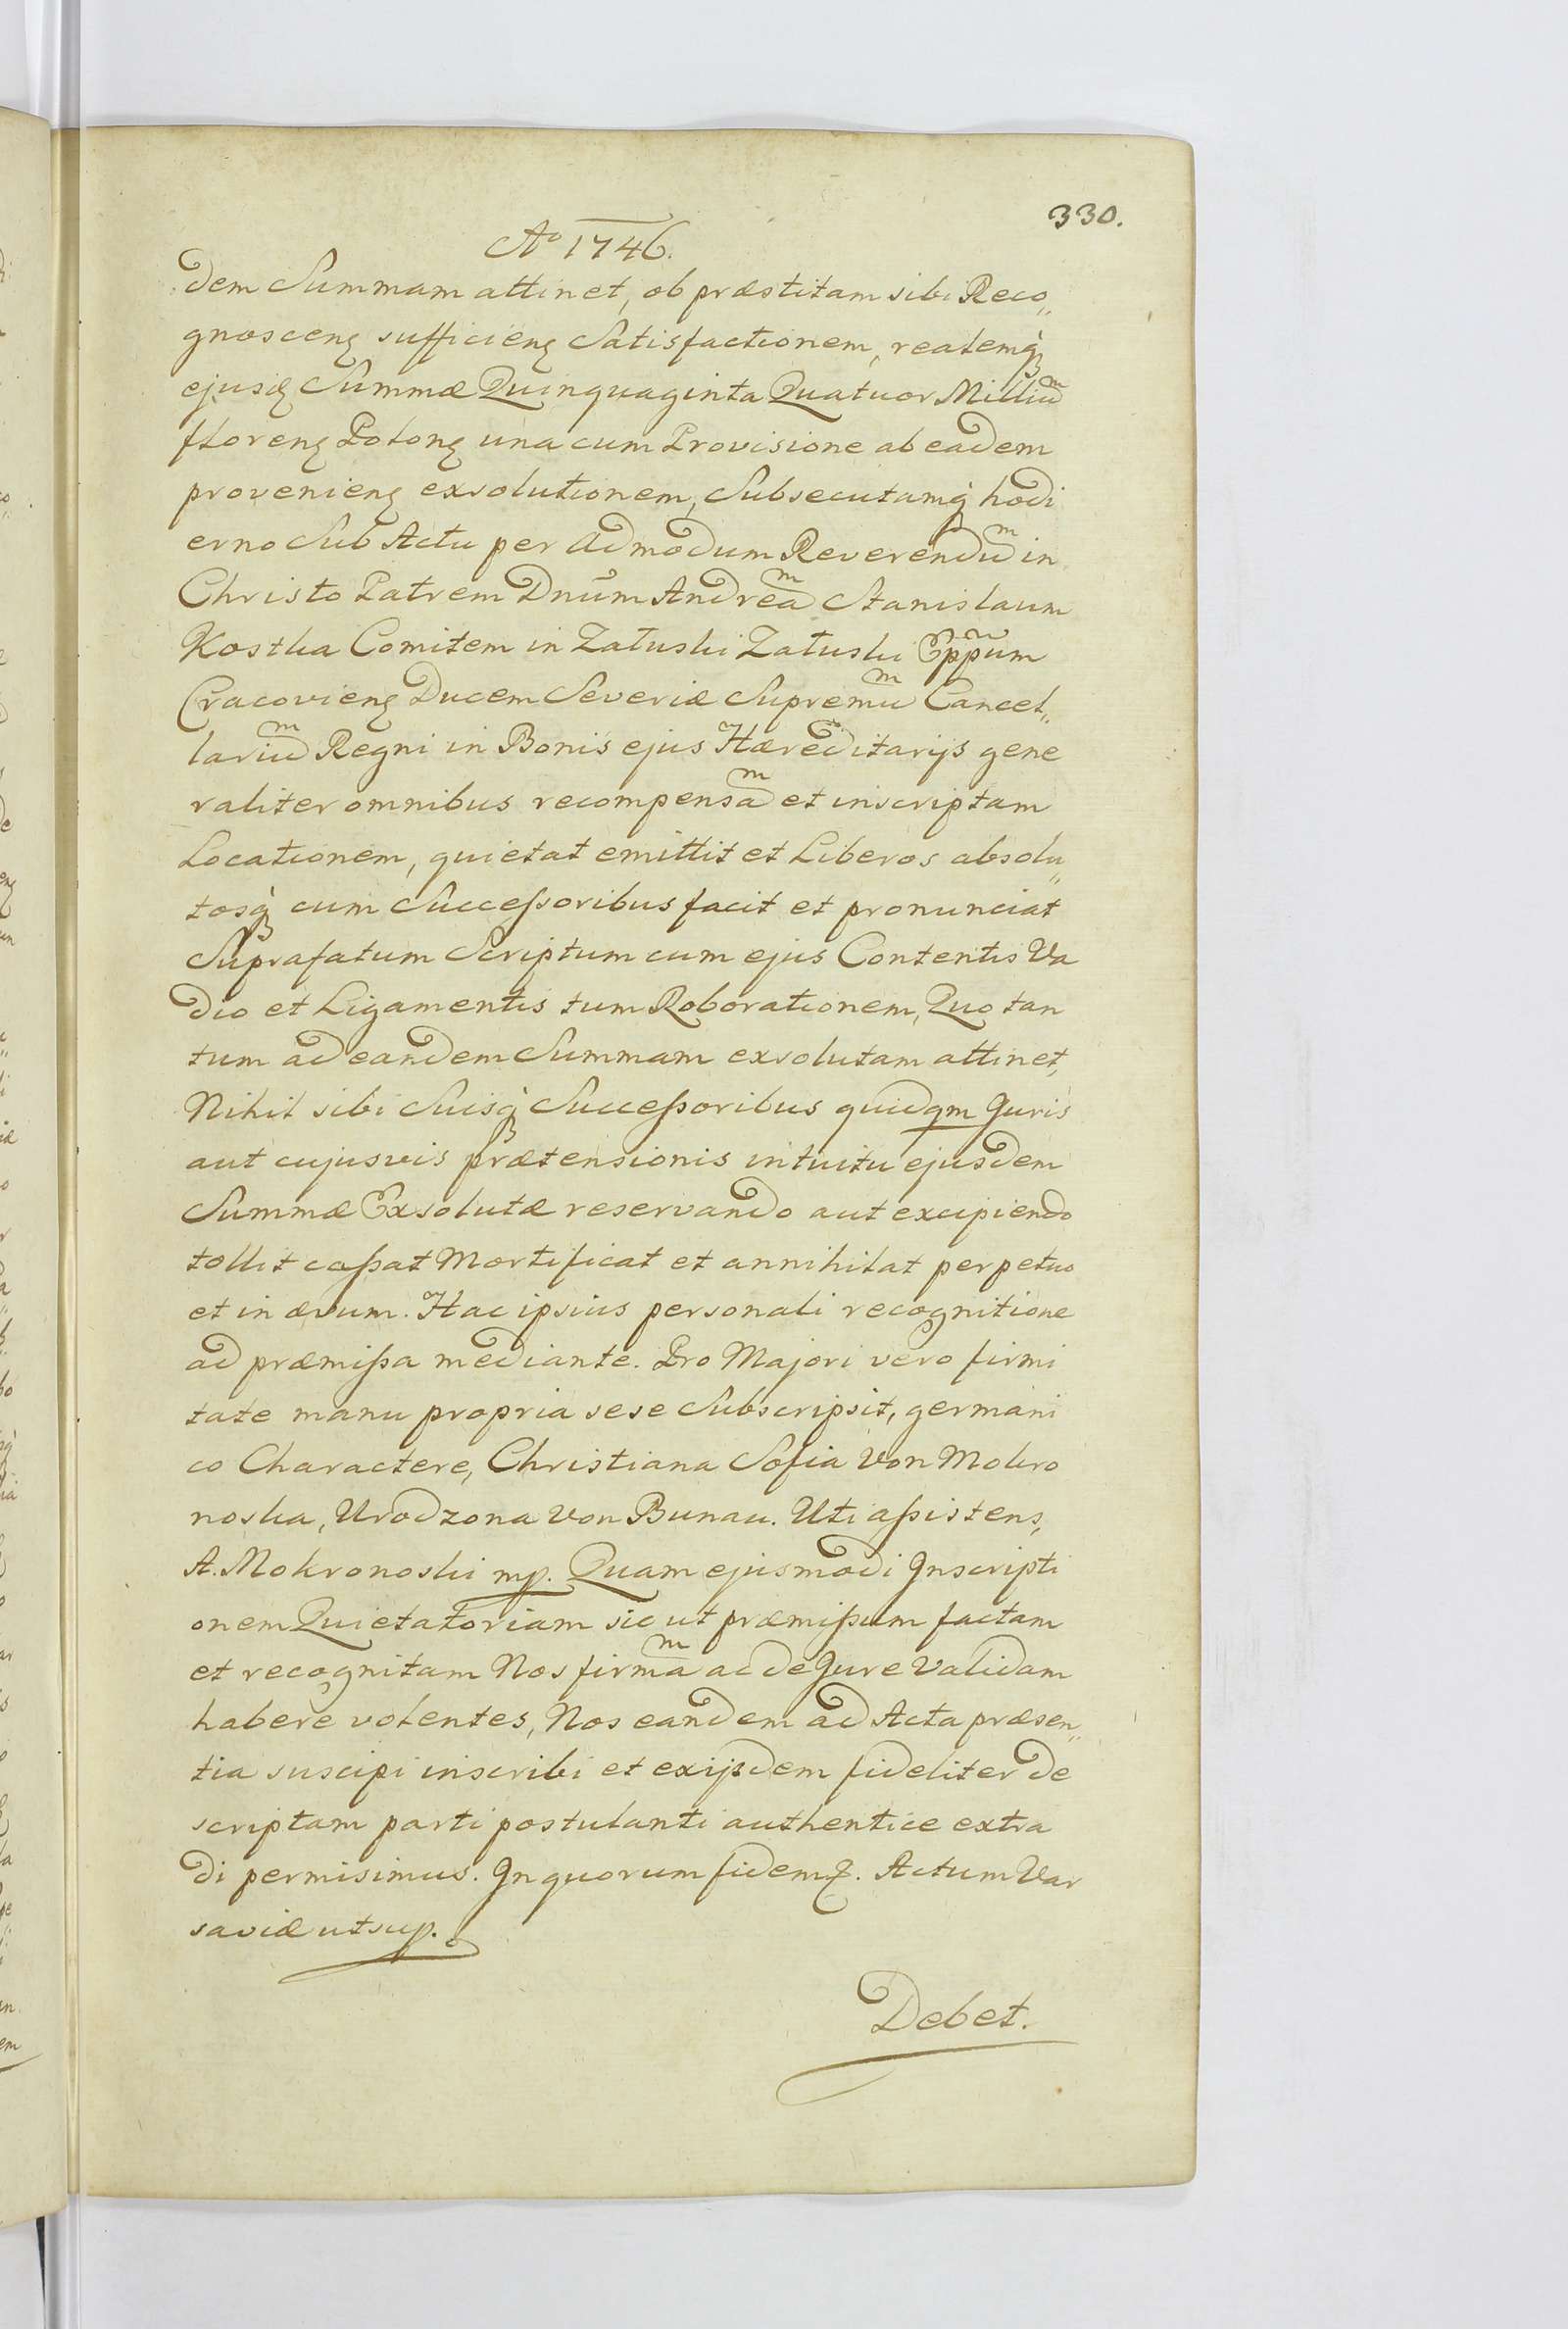 330.
Aᵒ 1746.
dem Summam attinet, ob præstitam sibi Reco„
gnoscenȩ sufficienȩ Satisfactionem, realemq̀
ejusdȩ Summæ Quinquaginta Quatuor Milliuᵐ
florenȩ Polonȩ una cum Provisione ab eadem
provenienȩ exsolutionem, Subsecutamq̀ hodi
erno Sub Actu per admodum Reverenduᵐ in
Christo Patrem Dnūm Andreaᵐ Stanislaum
Kostka Comitem in Załuski Załuski Ep̃pum
Cracovienȩ Ducem Severiæ Supremuᵐ Cancel„
lariuᵐ Regni in Bonis ejus Hæreditarijs gene
raliter omnibus recompensaᵐ et inscriptam
Locationem, quietat emittit et Liberos absolu„
tosq̀ cum Succeſsoribus facit et pronunciat
Suprafatum Scriptum cum ejus Contentis Va
dio et Ligamentis tum Roborationem, Quo tan
tum ad eandem Summam exsolutam attinet,
Nihil sibi Suisq̀ Succeſsoribus quidqm Juris
aut cujusvis prætensionis intuitu ejusdem
Summæ Exsolutæ reservando aut excipiendo
tollit caſsat Mortificat et annihilat perpetuo
et in ævum. Hac ipsius personali recognitione
ad præmiſsa mediante. Pro Majori vero firmi
tate manu propria sese Subscripsit, germani
co Charactere, Christiana Sofia Von Mokro
noska, Urodzona Von Bunau. Uti aſsistens,
A. Mokronoski mp. Quam ejusmodi Inscripti
onem Quietatoriam sic ut præmiſsum factam
et recognitam Nos firmaᵐ ac de Jure Validam
habere volentes, Nos eandem ad Acta præsen„
tia suscipi inscribi et exijsdem fideliter de
scriptam parti postulanti authentice extra
di permisimus. In quorum fidem &. Actum Var
saviæ ut sup.
Debet.